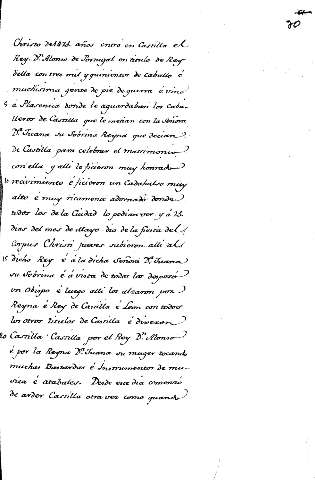 30
Christo de 1475 años entro en Castilla el
Rey Dn. Alonso de Portugal con titulo de Rey
della con tres mil y quinientos de caballo é
muchisima gente de pie de guerra é vino
5 a Plasencia donde le aguardaban los Caba-
lleros de Castilla que le tenian con la Señora
Da. Juana su Sobrina Reyna que decian
de Castilla para celebrar el matrimonio
con ella y alli le ficieron muy honrado
10 recivimiento é ficieron un Cadahalso muy
alto é muy ricamente adornado donde
todos los de la Ciudad lo pedian ver y á 25
dias del mes de Mayo dia de la fiesta del
Corpus Christi jueves subieron alli al
15 dicho Rey é á la dicha Señora Da. Juana
su Sobrina é á vista de todos los desposó
un Obispo é luego alli los alzaron por
Reyna é Rey de Castilla é Leon con todos
los otros titulos de Castilla é dixeron
20 Castilla Castilla por el Rey Dn. Alonso
é por la Reyna Da. Juana su muger tocando
muchas Bastardas é Instrumentos de mu-
sica é atabales. Desde este dia comenzo
de arder Castilla otra vez como quando